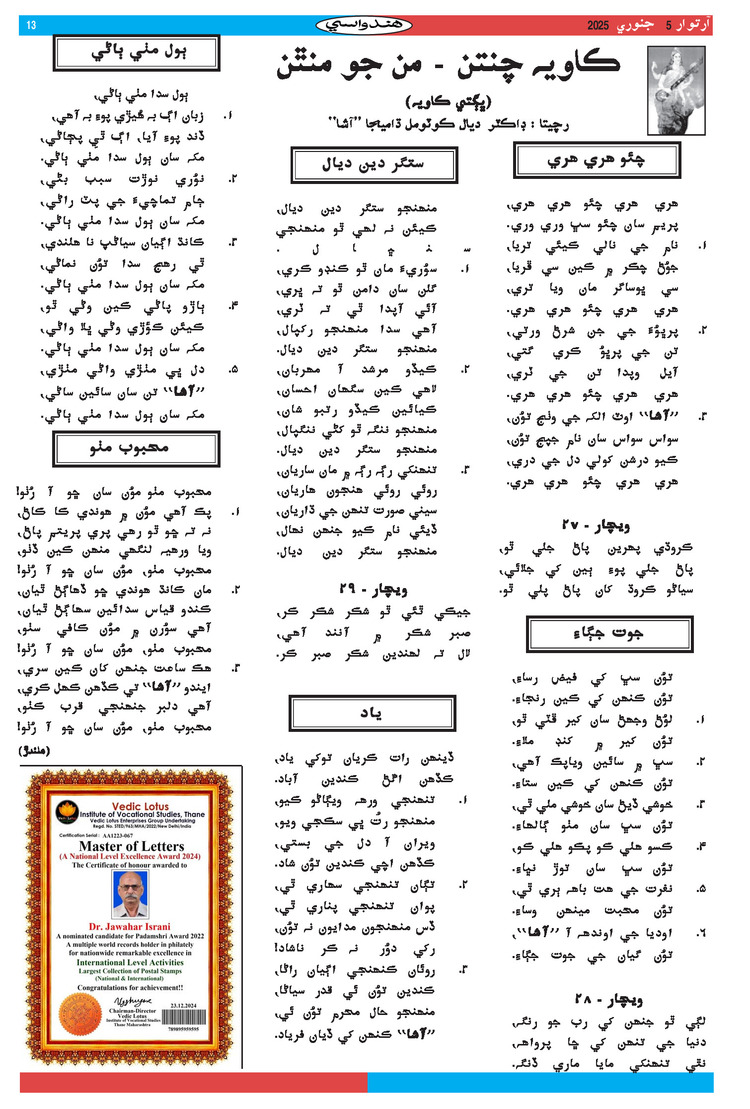 آرتوار 5 جنوري 2025
هندواسي
13
ڪاويه چنتن - من جو منٿن
(ڀڳتي ڪاويه)
رچيتا : ڊاڪٽر ديال ڪوٽومل ڌاميجا ”آشا“
چئو هري هري
هري هري چئو هري هري،
پريم سان چئو سڀ وري وري.
۱. نام جي نالي ڪيئي تريا،
جوڻ چڪر ۾ ڪين سي ڦريا،
سي ڀوساگر مان ويا تري،
هري هري چئو هري هري.
۲. پرڀوءَ جي جن شرڻ ورتي،
تن جي پرڀو ڪري گتي،
آيل وپدا تن جي ٽري،
هري هري چئو هري هري.
۳. ”آشا“ اوٽ الک جي وٺج تون،
سواس سواس سان نام جپج تون،
ڪيو درشن کولي دل جي دري،
هري هري چئو هري هري.
ويچار - ۲۷
ڪروڌي پهرين پاڻ جلي ٿو،
پاڻ جلي پوءِ ٻين کي جلائي،
سياڻو ڪروڌ کان پاڻ پلي ٿو.
جوت جڳاءِ
تون سڀ کي فيض رساءِ،
تون ڪنهن کي ڪين رنجاءِ.
۱. لوڻ وجهڻ سان کير ڦٽي ٿو،
تون کير ۾ کنڊ ملاءِ.
۲. سڀ ۾ سائين وياپڪ آهي،
تون ڪنهن کي ڪين ستاءِ.
۳. خوشي ڏيڻ سان خوشي ملي ٿي،
تون سڀ سان مٺو ڳالهاءِ.
۴. ڪسو هلي ڪو پڪو هلي ڪو،
تون سڀ سان توڙ نڀاءِ.
۵. نفرت جي هت باهه ٻري ٿي،
تون محبت مينهن وساءِ.
۶. اوديا جي اونده آ ”آشا“،
تون گيان جي جوت جڳاءِ.
ويچار - ۲۸
لڳي ٿو جنهن کي رب جو رنگ،
دنيا جي تنهن کي ڇا پرواهه،
نٿي تنهنکي مايا ماري ڏنگ.
ستگر دين ديال
منهنجو ستگر دين ديال،
ڪيئن نه لهي ٿو منهنجي
سنڀال.
۱. سوريءَ مان ٿو ڪنڊو ڪري،
گلن سان دامن ٿو ته ڀري،
آئي آپدا ٿي ته ٽري،
آهي سدا منهنجو رکپال،
منهنجو ستگر دين ديال.
۲. ڪيڏو مرشد آ مهربان،
لاهي ڪين سگهان احسان،
ڪيائين ڪيڏو رتبو شان،
منهنجو ننگ ٿو کڻي ننگپال،
منهنجو ستگر دين ديال.
۳. تنهنکي رڳ رڳ ۾ مان ساريان،
روئي روئي هنجون هاريان،
سيني صورت تنهن جي ڌاريان،
ڏيئي نام ڪيو جنهن نهال،
منهنجو ستگر دين ديال.
ويچار - ۲۹
جيڪي ٿئي ٿو شڪر شڪر ڪر،
صبر شڪر ۾ آنند آهي،
لال ته لهندين شڪر صبر ڪر.
ياد
ڏينهن رات ڪريان توکي ياد،
ڪڏهن اڱڻ ڪندين آباد.
۱. تنهنجي ورهه ويڳاڻو ڪيو،
منهنجو رت ڀي سڪجي ويو،
ويران آ دل جي بستي،
ڪڏهن اچي ڪندين تون شاد.
۲. تڳان تنهنجي سهاري ٿي،
پوان تنهنجي پناري ٿي،
ڏس منهنجون مدايون نه تون،
رکي دور نه ڪر ناشاد!
۳. روئان ڪنهنجي اڳيان راڻا،
ڪندين تون ئي قدر سياڻا،
منهنجو حال محرم تون ئي،
”آشا“ ڪنهن کي ڏيان فرياد.
ٻول مٺي ٻاڻي
ٻول سدا مٺي ٻاڻي،
۱. زبان اڳ ۾ گهڙي پوءِ ۾ آهي،
ڏند پوءِ آيا، اڳ ٿي پڄاڻي،
مک سان ٻول سدا مٺي ٻاڻي.
۲. نوري نوڙت سبب بڻي،
ڄام تماچيءَ جي پٽ راڻي،
مک سان ٻول سدا مٺي ٻاڻي.
۳. ڪانڌ اڳيان سياڻپ نا هلندي،
ٿي رهج سدا تون نماڻي،
مک سان ٻول سدا مٺي ٻاڻي.
۴. ٻاڙو پاڻي ڪين وڻي ٿو،
ڪيئن ڪوڙي وڻي ڀلا واڻي،
مک سان ٻول سدا مٺي ٻاڻي.
۵. دل ۾ مٺڙي واڻي مٺڙي،
”آشا“ تن سان سائين ساڻي،
مک سان ٻول سدا مٺي ٻاڻي.
محبوب مٺو
محبوب مٺو مون سان ڇو آ رٺو!
۱. پڪ آهي مون ۾ هوندي ڪا کاڻ،
نه ته ڇو ٿو رهي پري پريتم پاڻ،
ويا ورهيه لنگهي منهن ڪين ڏٺو،
محبوب مٺو، مون سان ڇو آ رٺو!
۲. مان ڪانڌ هوندي ڇو ڏهاڳڻ ٿيان،
ڪندو قياس سدائين سهاڳڻ ٿيان،
آهي سورن ۾ مون ڪافي سٺو،
محبوب مٺو، مون سان ڇو آ رٺو!
۳. هڪ ساعت جنهن کان ڪين سري،
ايندو ”آشا“ تي ڪڏهن کهل ڪري،
آهي دلبر جنهنجي قرب ڪٺو،
محبوب مٺو، مون سان ڇو آ رٺو!
(هلندڙ)
Vedic Lotus
Institute of Vocational Studies, Thane
Vedic Lotus Enterprises Group Undertaking
Regd. No. STED/963/MHA/2022/New Delhi/India
Certification Serial : AA1223-067
Master of Letters
(A National Level Excellence Award 2024)
The Certificate of honour awarded to
Dr. Jawahar Israni
A nominated candidate for Padamshri Award 2022
A multiple world records holder in philately
for nationwide remarkable excellence in
International Level Activities
Largest Collection of Postal Stamps
(National & International)
Congratulations for achievement!!
23.12.2024
Chairman-Director
Vedic Lotus
Institute of Vocational Studies
Thane Maharashtra